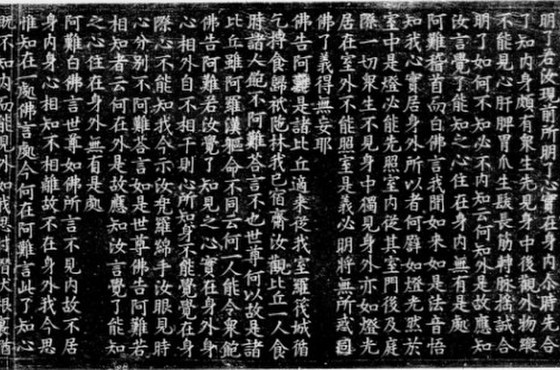 明若汝現前所明了心實在身內尒時先合
了知內身頗有眾生先見身中後觀外物縱
不能見心肝脾胃爪生髮長筋轉脉搖誠合
明了如何不知必不內知云何知外是故應知
汝言覺了能知之心住在身內無有是處
阿難稽首而白佛言我聞如来如是法音悟
知我心實居身外所以者何譬如燈光然於
室中是燈必能先照室內從其室門後及庭
際一切眾生不見身中獨見身外亦如燈光
居在室外不能照室是義必明將無所惑同
佛了義得無妄耶
佛告阿難是諸比丘適来從我室羅筏城循
乞摶食歸祇陁林我已宿齋汝觀比丘一人食
時諸人飽不阿難答言不也世尊何以故是諸
比丘雖阿羅漢軀命不同云何一人能令眾飽
佛告阿難若汝覺了知見之心實在身外身
心相外自不相干則心所知身不能覺覺在身
際心不能知我今示汝兜羅綿手汝眼見時
心分別不阿難答言如是世尊佛告阿難若
相知者云何在外是故應知汝言覺了能知
之心住在身外無有是處
阿難白佛言世尊如佛所言不見內故不居
身內身心相知不相離故不在身外我今思
惟知在一處佛言處今何在阿難言此了知心
既不知內而能見外如我思忖潛伏根裏猶